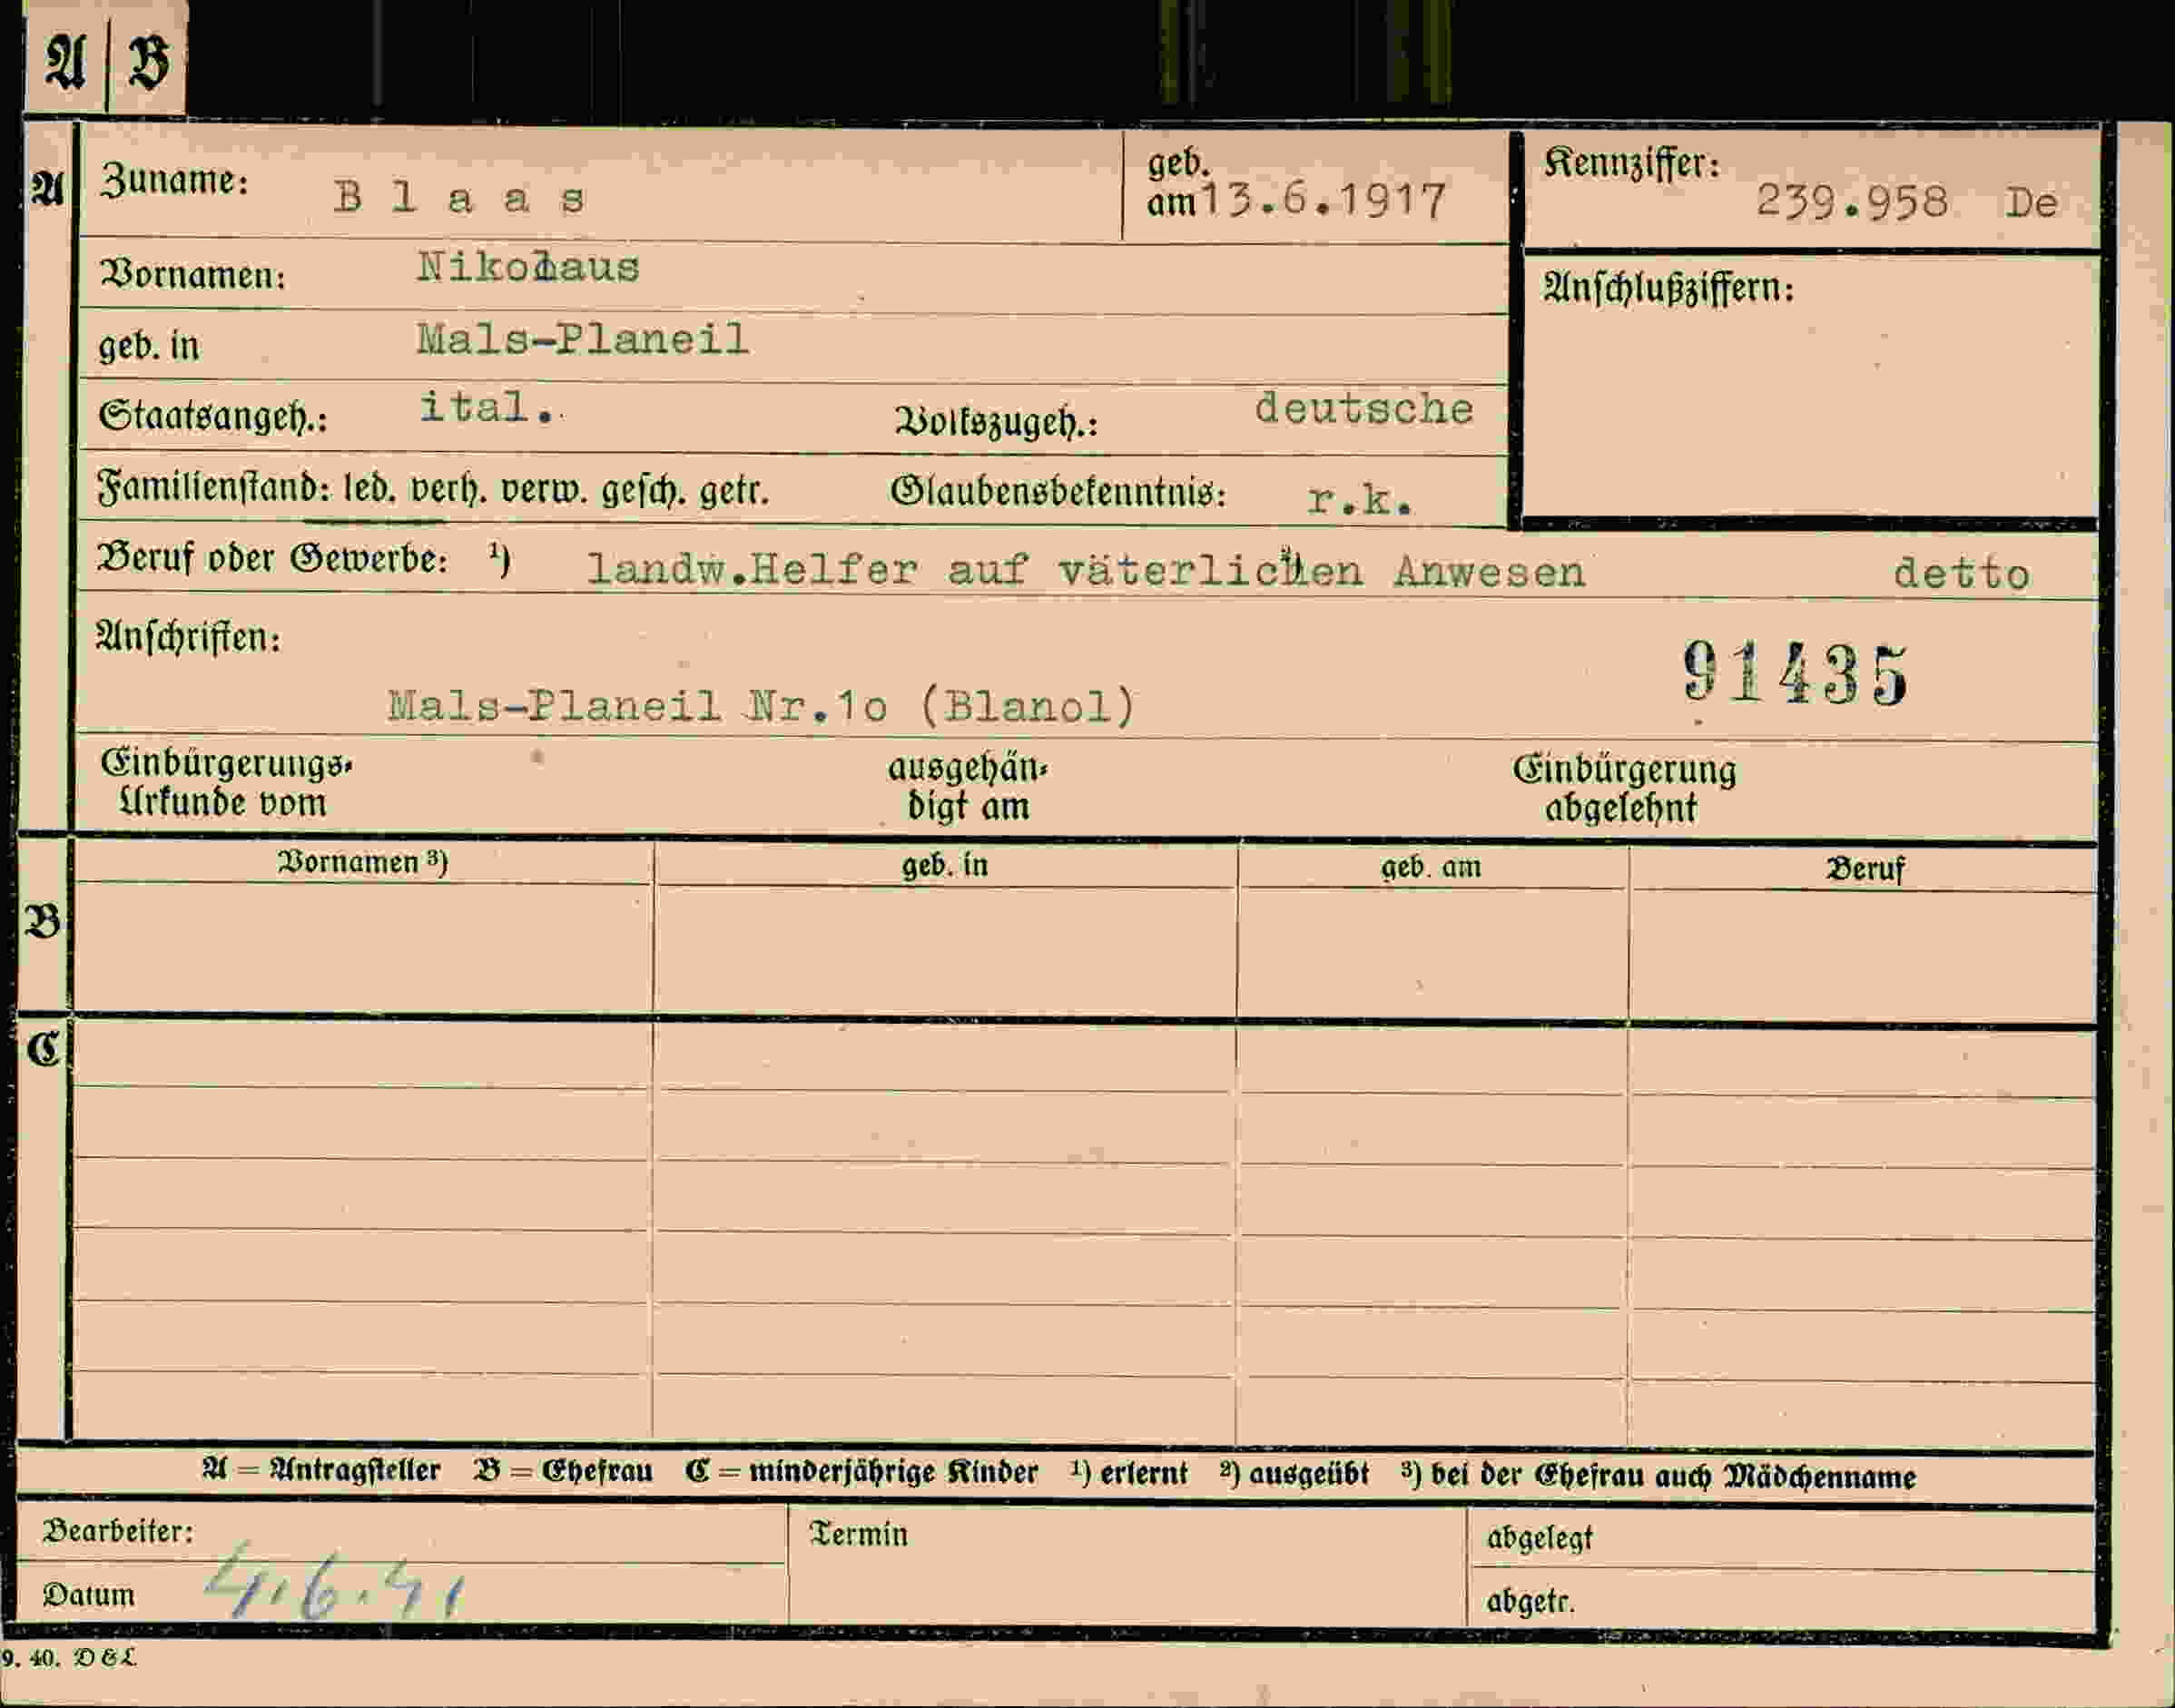 A B
A Zuname: Blaas geb. am 13.6.1917 Kennziffer: 239.958 De
Vornamen: Nikolaus
Anschlußziffern:
geb. in Mals-Planeil
Staatsangeh.: ital. Volkszugeh.: deutsche
Familienstand: led. verh. verw. gesch. getr. Glaubensbekenntnis: r.k.
Beruf oder Gewerbe: ¹) landw.Helfer auf väterlichen Anwesen detto
Anschriften:
91435
Mals-Planeil Nr.1o (Blanol)
Einbürgerungs-
Urkunde vom
ausgehän-
digt am
Einbürgerung
abgelehnt
Vornamen ³) geb. in geb. am Beruf
B
C
A = Antragsteller B = Ehefrau C = minderjährige Kinder ¹) erlernt ²) ausgeübt ³) bei der Ehefrau auch Mädchenname
Bearbeiter: Termin abgelegt
Datum 4.6.41 abgetr.
9. 40. D & L